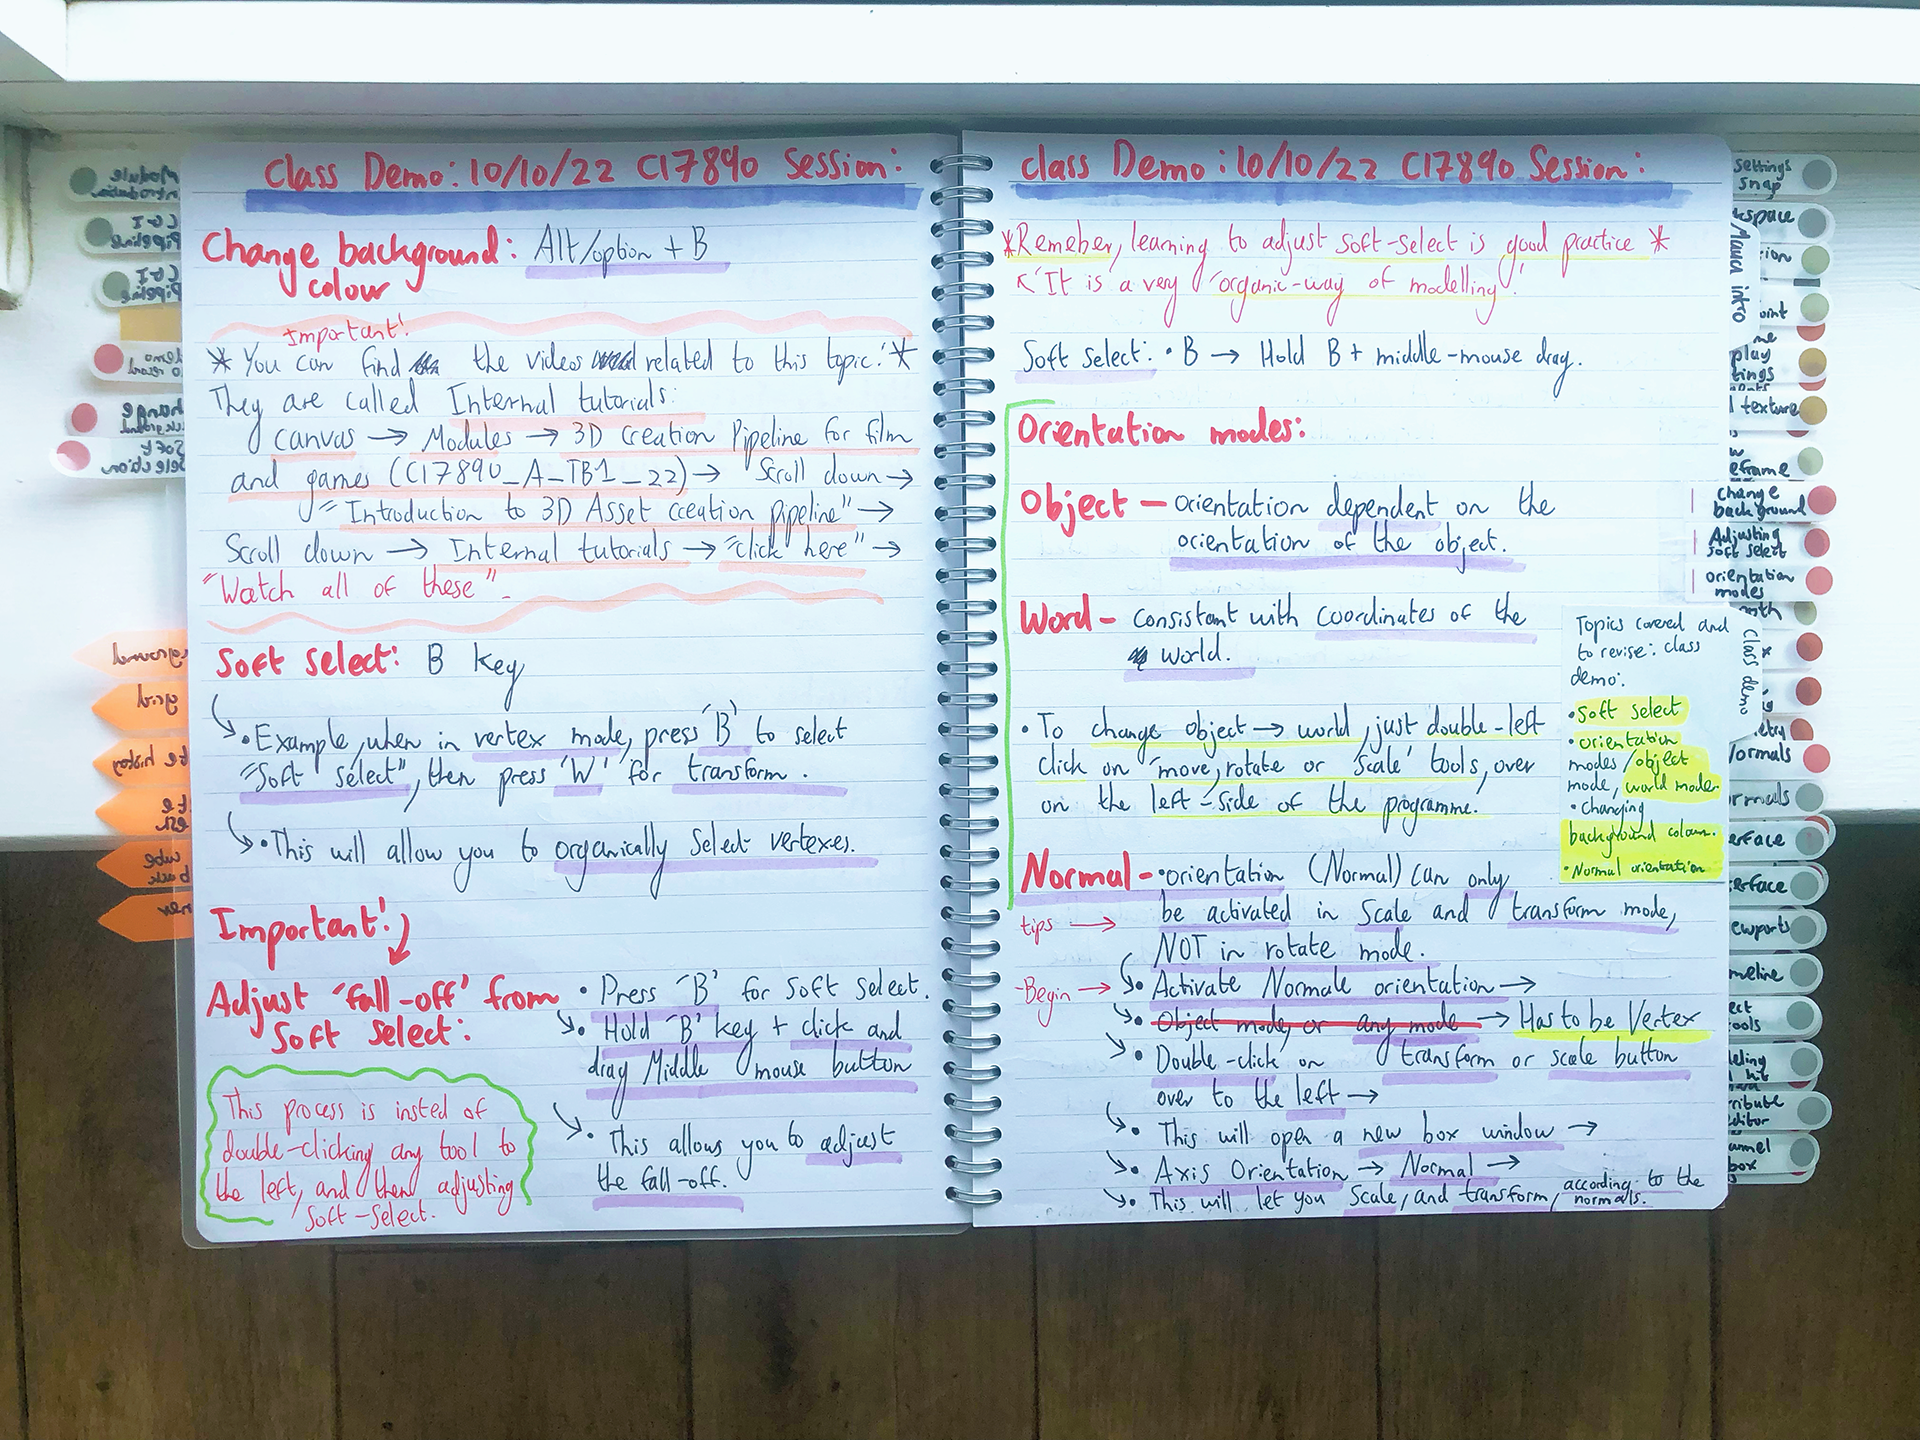 Class Demo: 10/10/22 CI7890 Session:
Change background: Alt/option + B
colour
Important!
* You can find the videos related to this topic! *
They are called Internal tutorials:
canvas → Modules → 3D Creation Pipeline for film
and games (CI7890_A_TB1_22) → Scroll down →
"Introduction to 3D Asset creation pipeline" →
Scroll down → Internal tutorials → "click here" →
"Watch all of these".
Soft select: B key
• Example, when in vertex mode, press 'B' to select
"Soft select", then press 'W' for transform.
• This will allow you to organically select vertexes.
Important!
Adjust 'fall-off' from
Soft select:
• Press 'B' for soft select.
• Hold 'B' key + click and
drag Middle mouse button
• This allows you to adjust
the fall-off.
This process is insted of
double-clicking any tool to
the left, and then adjusting
Soft-Select.
Class Demo: 10/10/22 CI7890 Session:
*Remeber, learning to adjust soft-select is good practice *
'It is a very 'organic-way of modelling'.'
Soft select: • B → Hold B + middle-mouse drag.
Orientation modes:
Object – orientation dependent on the
orientation of the object.
Word – consistant with coordinates of the
world.
• To change object → world, just double-left
click on 'move, rotate or 'Scale' tools, over
on the left-side of the programme.
Normal – • orientation (Normal) can only
be activated in Scale and transform mode,
tips →
NOT in rotate mode.
Begin → • Activate Normale orientation →
• Object mode, or any mode → Has to be Vertex
• Double-click on transform or scale button
over to the left →
• This will open a new box window →
• Axis Orientation → Normal →
• This will let you Scale, and transform, according to the
normals.
Topics covered and
to revise: class
demo:
• Soft select
• orientation
modes/object
mode, world mode
• changing
background colour.
• Normal orientation
Class demo
settings
snap
Maya intro
texture
change
background
Adjusting
soft select
orientation
modes